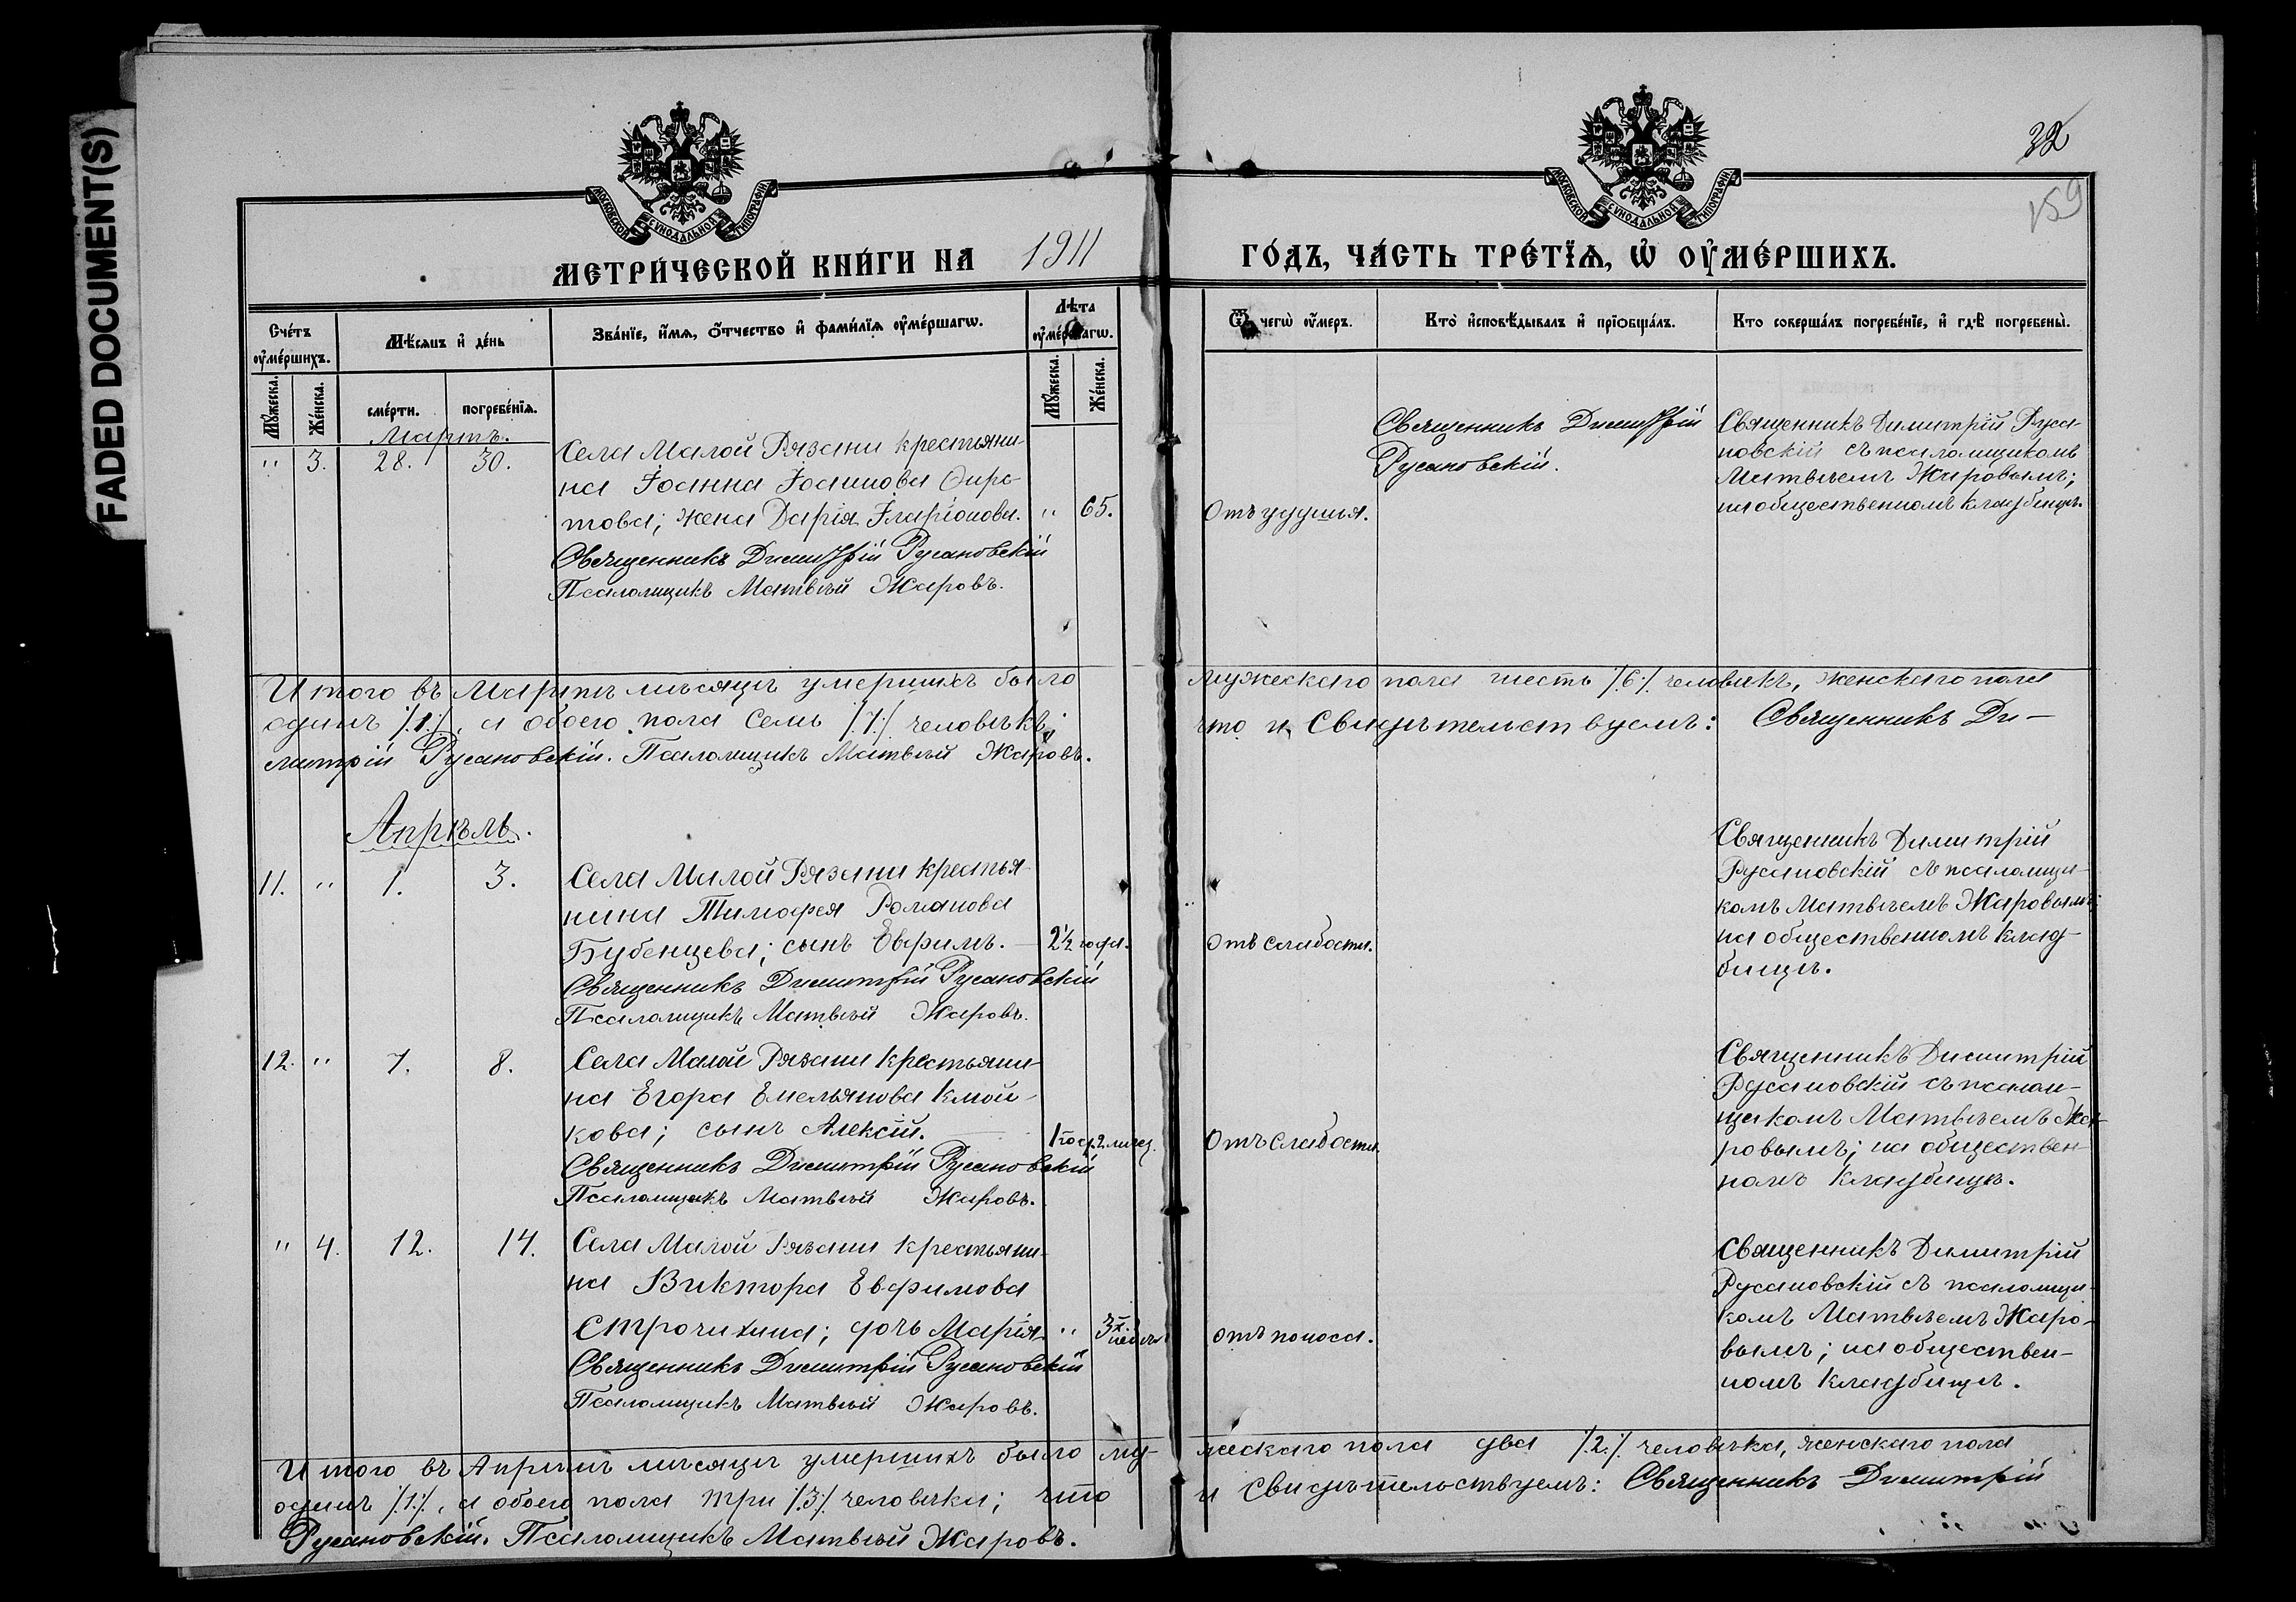 FADED DOCUMENT(S)
32
159
МОСКОВСКОЙ СѴНОДАЛЬНОЙ ТИПОГРАФІИ
МОСКОВСКОЙ СѴНОДАЛЬНОЙ ТИПОГРАФІИ
МЕТРИ́ЧЕСКОЙ КНИ́ГИ НА 1911 ГО́ДЪ, ЧА́СТЬ ТРЕ́ТЇѦ, Ѡ҆ ОУ҆МЕ́РШИХЪ.
Сче́тъ оу҆ме́ршихъ.
Мѣ́сѧцъ и҆ де́нь
Зва́нїе, и҆́мѧ, ѻ҆́тчество и҆ фами́лїѧ оу҆ме́ршагѡ.
Лѣ́та оу҆ме́ршагѡ.
Ѿ чегѡ̀ оу҆́меръ.
Кто̀ и҆сповѣ́дывалъ и҆ прїѡбща́лъ.
Кто соверша́лъ погребе́нїе, и҆ гдѣ̀ погребены̀.
Мꙋ́жеска.
Же́нска.
сме́рти.
погребе́нїѧ.
Мꙋ́жеска.
Же́нска.
Мартъ.
" 3. 28. 30.
Села Малой Рязани крестьяни-
на Іоанна Іоаннова
това; жена Дарія Иларіонова. " 65.
Священникъ Димитрій Русановскій
Псаломщикъ Матвѣй Жаровъ.
Отъ удушья.
Священникъ Димитрій
Русановскій.
Священникъ Димитрій Руса-
новскій съ псаломщикомъ
Матвѣемъ Жаровымъ;
на общественномъ кладбищѣ.
Итого въ Мартѣ мѣсяцѣ умершихъ было мужескаго пола шесть /:6:/ человѣкъ, женскаго пола
одинъ /:1:/, а обоего пола семь /:7:/ человѣкъ; что и свидѣтельствуемъ: Священникъ Ди-
митрій Русановскій. Псаломщикъ Матвѣй Жаровъ.
Апрѣль.
11. " 1. 3.
Села Малой Рязани крестья-
нина Тимофея Романова
Бубенцева; сынъ Евфимъ. — 2½ года.
Священникъ Димитрій Русановскій
Псаломщикъ Матвѣй Жаровъ.
Отъ слабости.
Священникъ Димитрій
Русановскій съ псаломщи-
комъ Матвѣемъ Жаровымъ;
на общественномъ клад-
бищѣ.
12. " 7. 8.
Села Малой Рязани крестьяни-
на Егора Емельянова Клой-
кова; сынъ Алексій. — 1 год. 2 мѣсяц.
Священникъ Димитрій Русановскій
Псаломщикъ Матвѣй Жаровъ.
Отъ слабости.
Священникъ Димитрій
Русановскій съ псалом-
щикомъ Матвѣемъ Жа-
ровымъ; на обществен-
номъ кладбищѣ.
" 4. 12. 14.
Села Малой Рязани крестьяни-
на Виктора Евфимова
Строчихина; дочь Марія. " 3х. недѣль
Священникъ Димитрій Русановскій
Псаломщикъ Матвѣй Жаровъ.
отъ поноса.
Священникъ Димитрій
Русановскій съ псаломщи-
комъ Матвѣемъ Жаро-
вымъ; на обществен-
номъ кладбищѣ.
Итого въ Апрѣлѣ мѣсяцѣ умершихъ было му- жескаго пола два /:2:/ человѣка, женскаго пола
одинъ /:1:/, а обоего пола три /:3:/ человѣка; что и свидѣтельствуемъ: Священникъ Димитрій
Русановскій. Псаломщикъ Матвѣй Жаровъ.